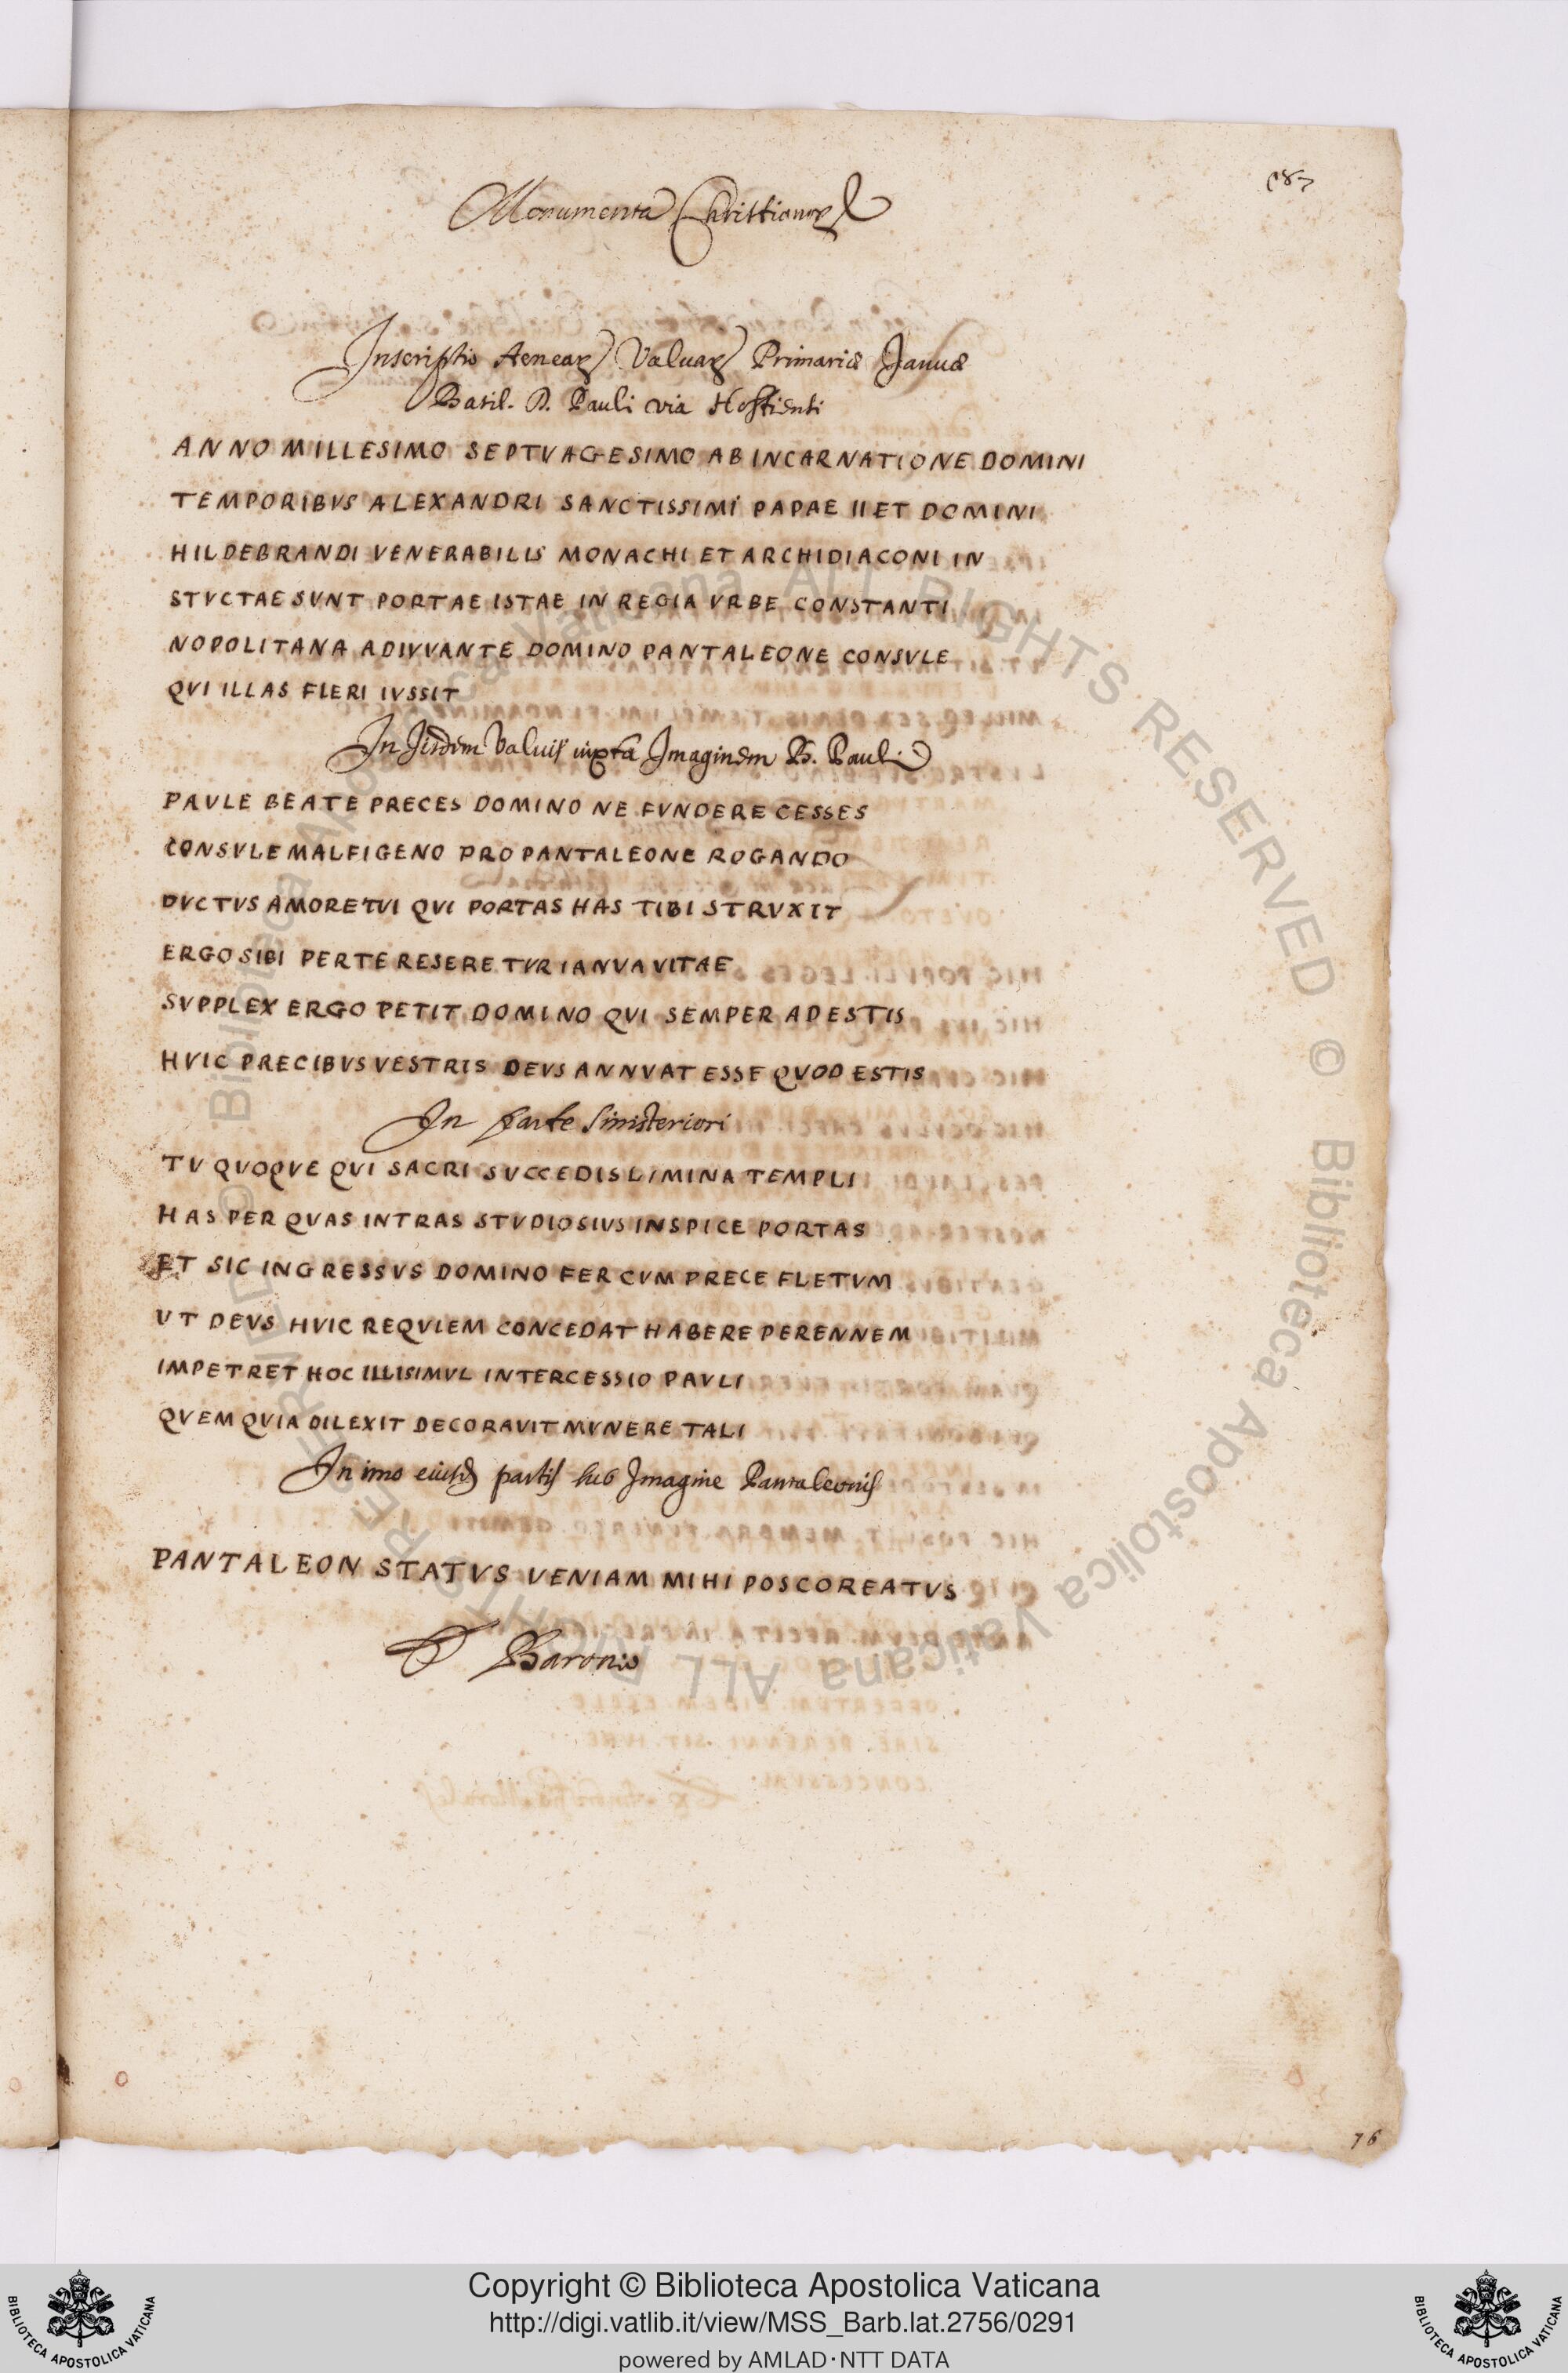 Monumenta Christianoꝝ
Inscriptio Aeneaꝝ Valuaꝝ Primariæ Januæ
Basil. D. Pauli via Hostiensi
ANNO MILLESIMO SEPTVAGESIMO AB INCARNATIONE DOMINI
TEMPORIBVS ALEXANDRI SANCTISSIMI PAPAE II ET DOMINI
HILDEBRANDI VENERABILIS MONACHI ET ARCHIDIACONI IN
STVCTAE SVNT PORTAE ISTAE IN REGIA VRBE CONSTANTI
NOPOLITANA ADIVVANTE DOMINO PANTALEONE CONSVLE
QVI ILLAS FIERI IVSSIT
In Iisdem Valuis iuxta Imaginem B. Pauli
PAVLE BEATE PRECES DOMINO NE FVNDERE CESSES
CONSVLE MALFIGENO PRO PANTALEONE ROGANDO
DVCTVS AMORE TVI QVI PORTAS HAS TIBI STRVXIT
ERGO SIBI PER TE RESERETVR IANVA VITAE
SVPPLEX ERGO PETIT DOMINO QVI SEMPER ADESTIS
HVIC PRECIBVS VESTRIS DEVS ANNVAT ESSE QVOD ESTIS
In parte sinisteriori
TV QVOQVE QVI SACRI SVCCEDIS LIMINA TEMPLI
HAS PER QVAS INTRAS STVDIOSIVS INSPICE PORTAS
ET SIC INGRESSVS DOMINO FER CVM PRECE FLETVM
UT DEVS HVIC REQVIEM CONCEDAT HABERE PERENNEM
IMPETRET HOC ILLI SIMVL INTERCESSIO PAVLI
QVEM QVIA DILEXIT DECORAVIT MVNERE TALI
In imo eiusd partis sub Imagine Pantaleonis
PANTALEON STATVS VENIAM MIHI POSCO REATVS
Baronio
76
Copyright © Biblioteca Apostolica Vaticana
http://digi.vatlib.it/view/MSS_Barb.lat.2756/0291
powered by AMLAD·NTT DATA
BIBLIOTECA APOSTOLICA VATICANA
BIBLIOTECA APOSTOLICA VATICANA
© Biblioteca Apostolica Vaticana ALL RIGHTS RESERVED © Biblioteca Apostolica Vaticana ALL RIGHTS RESERVED